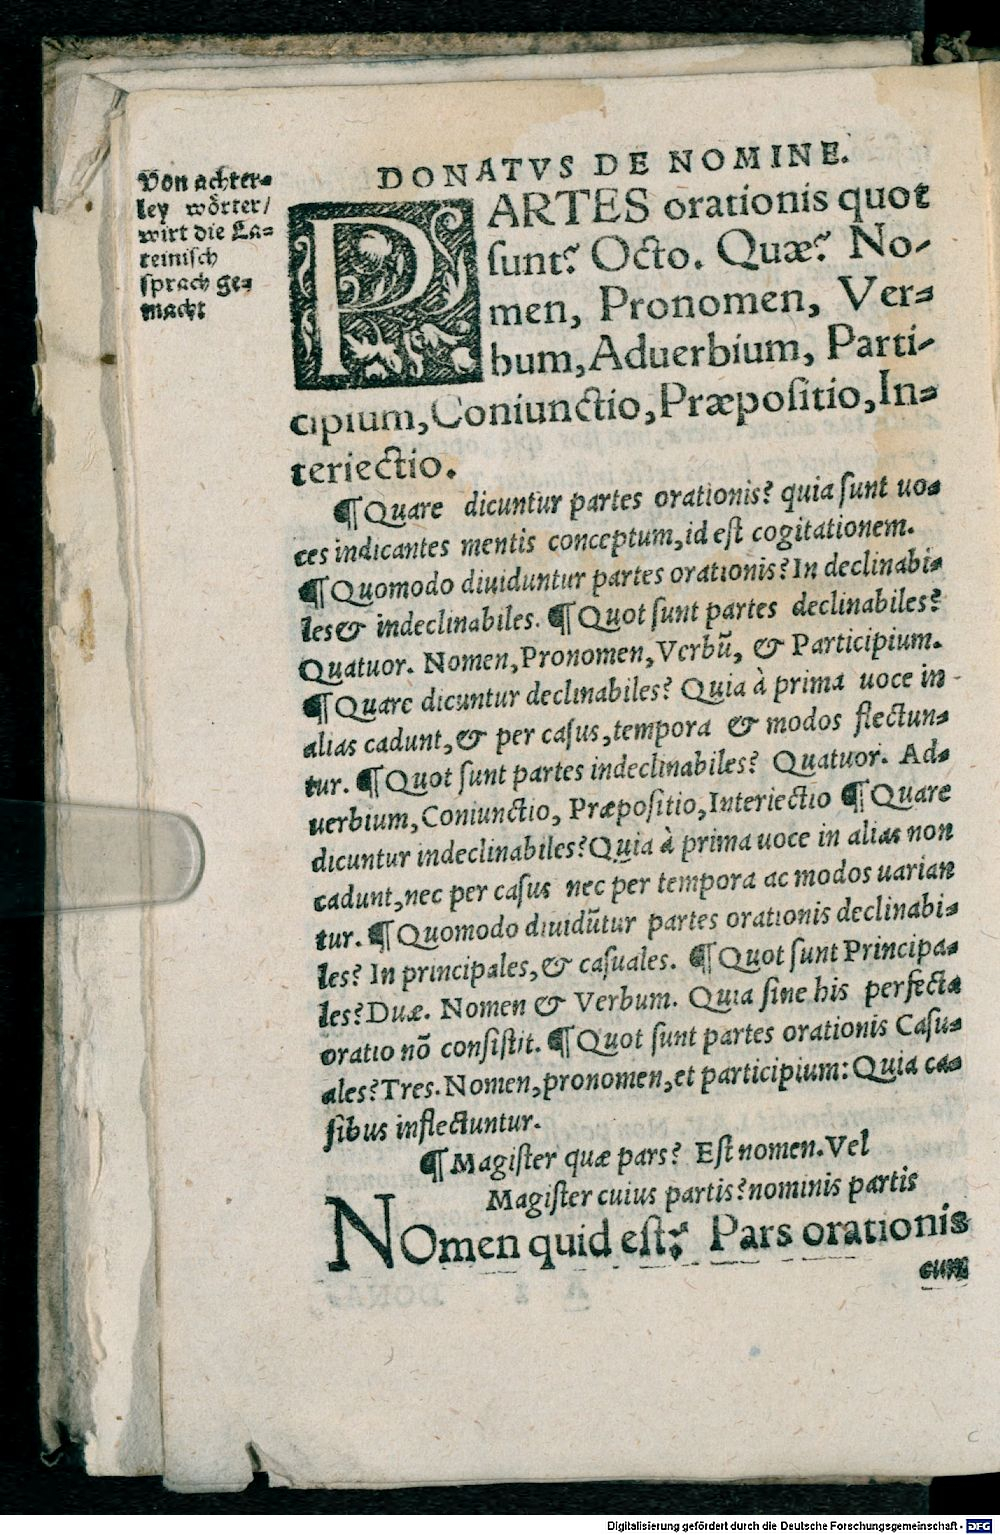 DONATVS DE NOMINE.
Von achter-
ley wörter/
wirt die La-
teinisch
sprach ge-
macht
PARTES orationis quot
sunt? Octo. Quæ? No-
men, Pronomen, Ver-
bum, Aduerbium, Parti-
cipium, Coniunctio, Præpositio, In-
teriectio.
¶ Quare dicuntur partes orationis? quia sunt uo-
ces indicantes mentis conceptum, id est cogitationem.
¶ Quomodo diuiduntur partes orationis? In declinabi-
les & indeclinabiles. ¶ Quot sunt partes declinabiles?
Quatuor. Nomen, Pronomen, Verbū, & Participium.
¶ Quare dicuntur declinabiles? Quia à prima uoce in-
alias cadunt, & per casus, tempora & modos flectun-
tur. ¶ Quot sunt partes indeclinabiles? Quatuor. Ad-
uerbium, Coniunctio, Præpositio, Interiectio ¶ Quare
dicuntur indeclinabiles? Quia à prima uoce in alias non
cadunt, nec per casus nec per tempora ac modos uarian
tur. ¶ Quomodo diuidūtur partes orationis declinabi-
les? In principales, & casuales. ¶ Quot sunt Principa-
les? Duæ. Nomen & Verbum. Quia sine his perfecta
oratio nō consistit. ¶ Quot sunt partes orationis Casu-
ales? Tres. Nomen, pronomen, et participium: Quia ca-
sibus inflectuntur.
¶ Magister quæ pars? Est nomen. Vel
Magister cuius partis? nominis partis
NOmen quid est? Pars orationis
cum
Digitalisierung gefördert durch die Deutsche Forschungsgemeinschaft - DFG